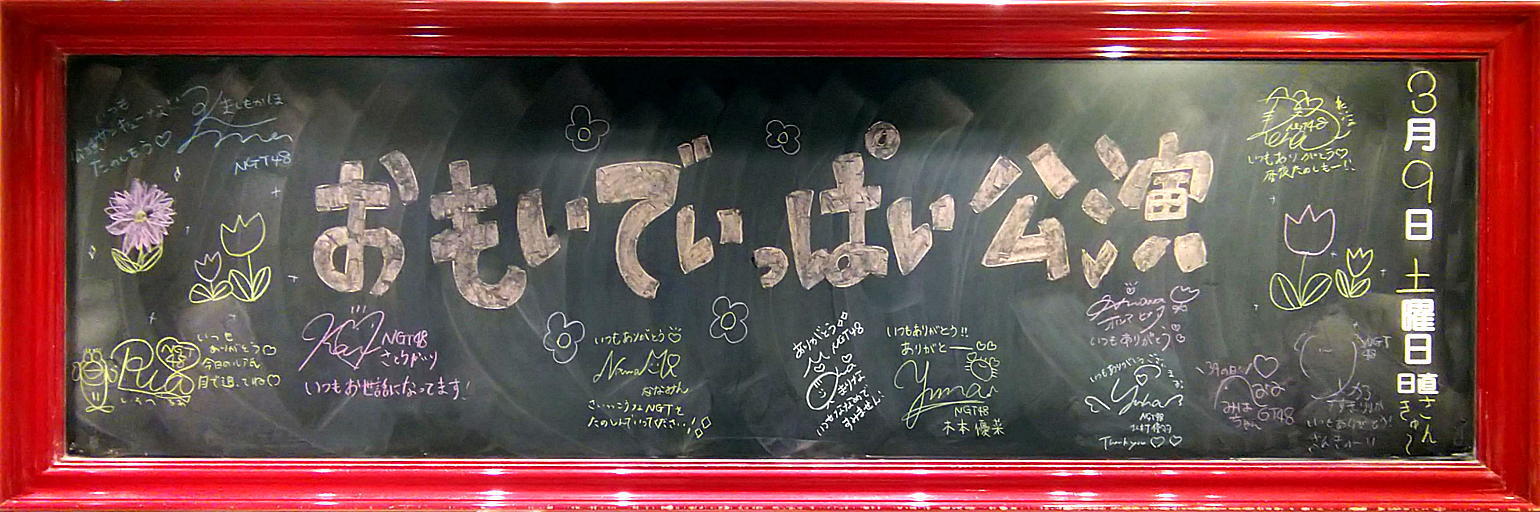 おもいでいっぱい公演
3月9日土曜日
日直
さんきゅ〜
いつも
たのしもう♡
ましもかほ
NGT48
NGT48
いつもありがとう♡
NGT
48
いつも
ありがとう♡
今日のルアを
目で追ってね♡
NGT48
さとうかり
いつもお世話になってます!
いつもありがとう♡
ななみん
さいっこうなNGTを
たのしんでいってください!!
ありがとう
NGT48
いつもななめで
すみません
いつもありがとう!!
ありがとー
Yuna
NGT48
木本優菜
いつもありがとう
いつもありがとう
Yuka
NGT48
Thank you♡♡
みは
ちゃん
GT48
NGT
48
いつもありがとう!
さんきゅーい